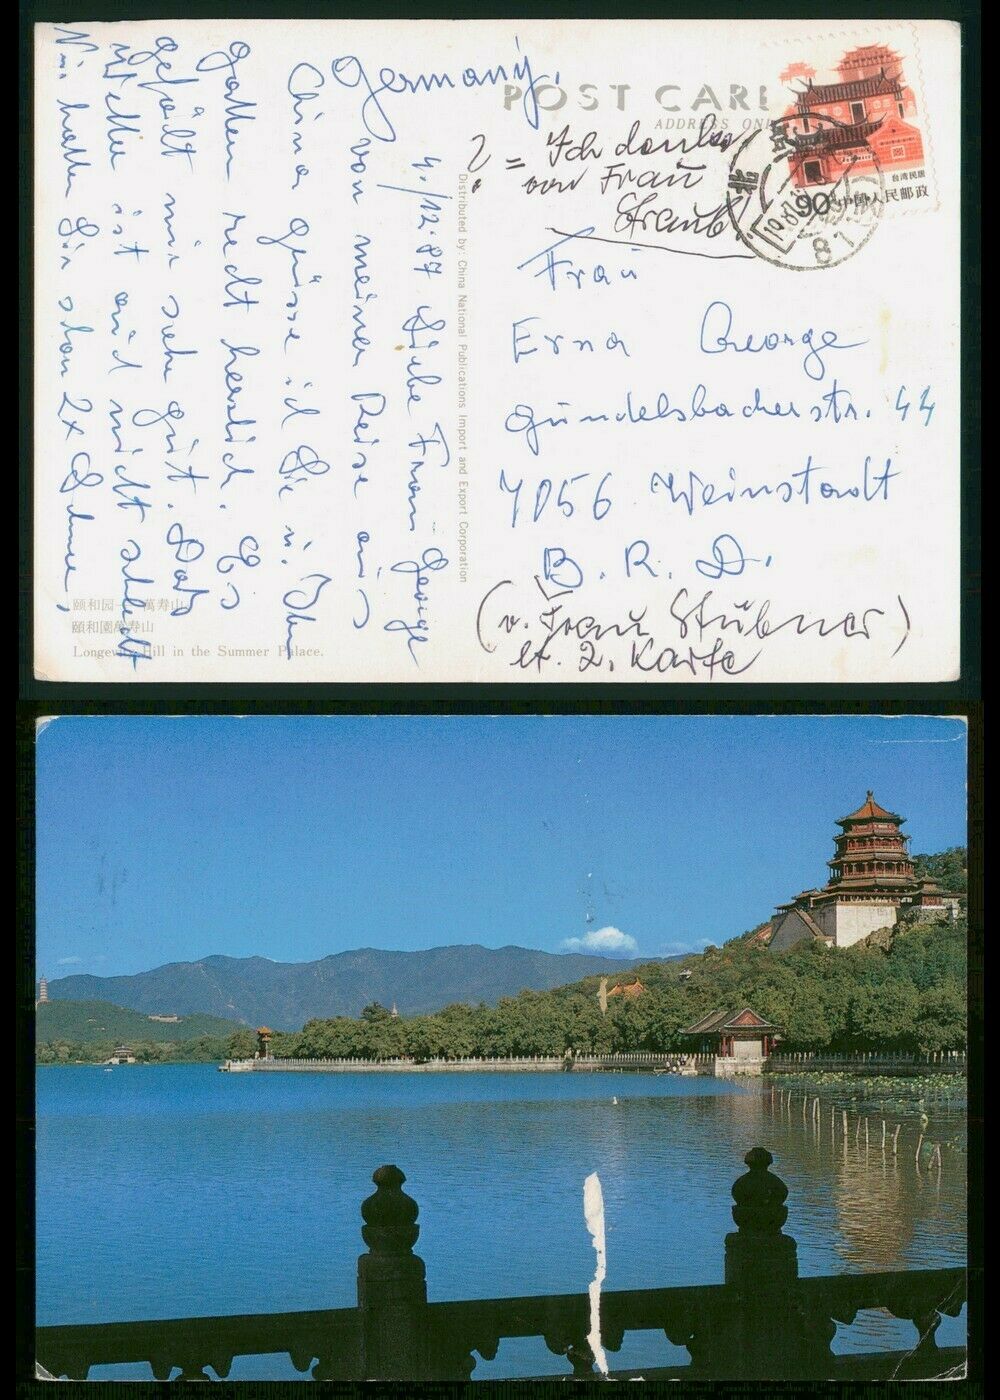 POST CARD
ADDRESS ONLY
Germany.
4./12.87 Liebe Frau George
von meiner Reise aus
China grüsse ich Sie u. Ihren
Gatten recht herzlich. Es
gefällt mir sehr gut. Das
Wetter ist auch nicht schlecht
Wir hatten hier schon 2x Schnee,
Distributed by: China National Publications Import and Export Corporation
颐和园 — 萬寿山
頤和園萬寿山
Longevity Hill in the Summer Palace.
? = Ich danke
von Frau
Straub!
台湾民居
90 中国人民邮政
北京
Frau
Erna George
Gundelsbacherstr. 44
7056 Weinstadt
B. R. D.
(v. Frau Stübner)
lt. 2. Karte